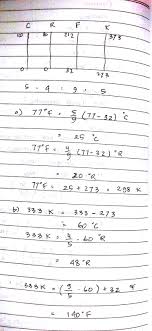 C R F K
100 80 212 373
0 0 32 273
5 : 4 : 9 : 5
a) 77°F = 5/9 (77-32) °C
= 25 °C
77°F = 4/9 (77-32) °R
= 20 °R
77°F = 25 + 273 = 298 K
b) 333 K = 333 - 273
= 60 °C
333 K = 4/5 . 60 °R
= 48 °R
333K = (9/5 . 60) + 32 °F
= 140 °F